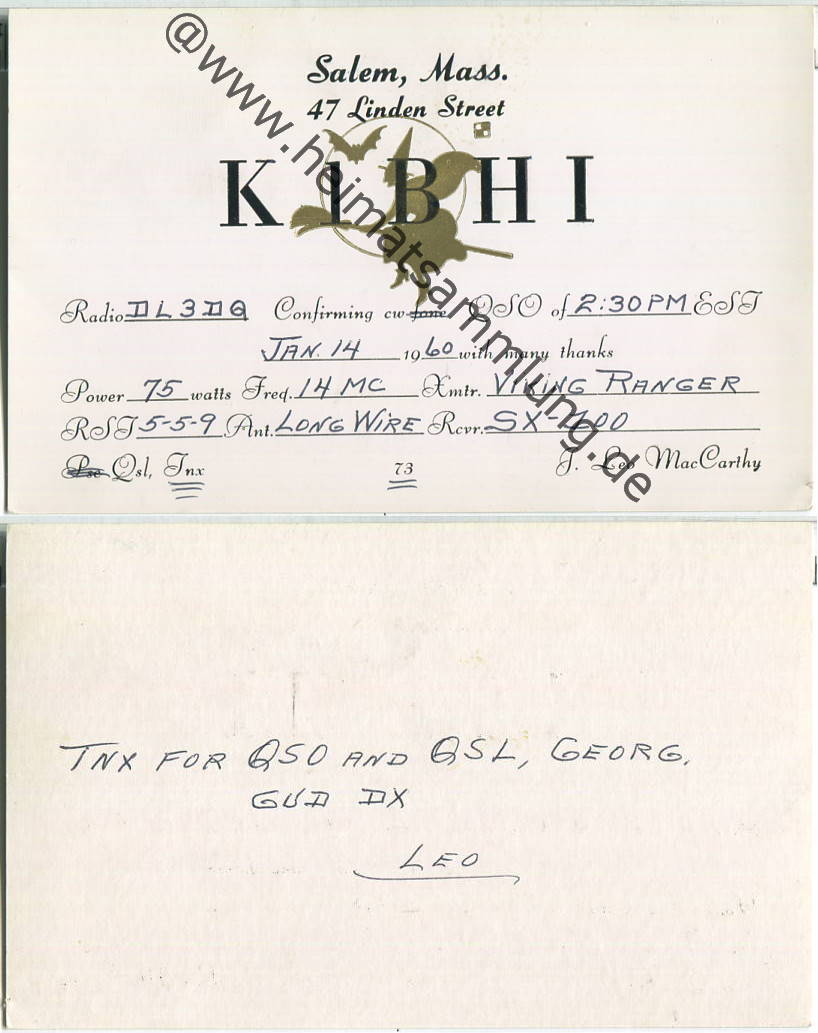 Salem, Mass.
47 Linden Street
K1BHI
Radio DL3DQ Confirming cw-fone QSO of 2:30 PM EST
JAN. 14 1960 with many thanks
Power 75 watts Freq. 14 MC Xmtr. VIKING RANGER
RST 5-5-9 Ant. LONG WIRE Rcvr. SX-100
Pse Qsl, Tnx 73 J. Leo MacCarthy
@www.heimatsammlung.de
TNX FOR QSO AND QSL, GEORG.
GUD DX
LEO